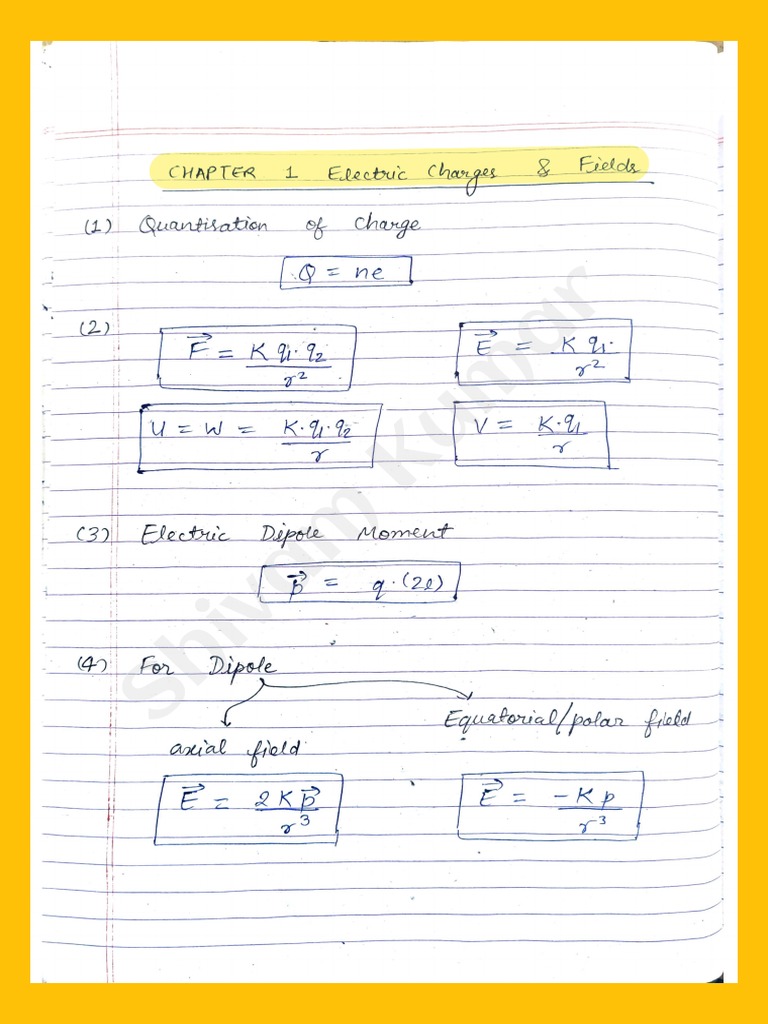 CHAPTER 1 Electric Charges & Fields
(1) Quantisation of charge
Q = ne
(2)
F⃗ = K q₁. q₂ / r²
E⃗ = K q₁. / r²
U = W = K. q₁. q₂ / r
V = K. q₁ / r
(3) Electric Dipole Moment
p⃗ = q. (2l)
(4) For Dipole
axial field
Equatorial/polar field
E⃗ = 2 K p⃗ / r³
E⃗ = -K p / r³
Shivam Kumar